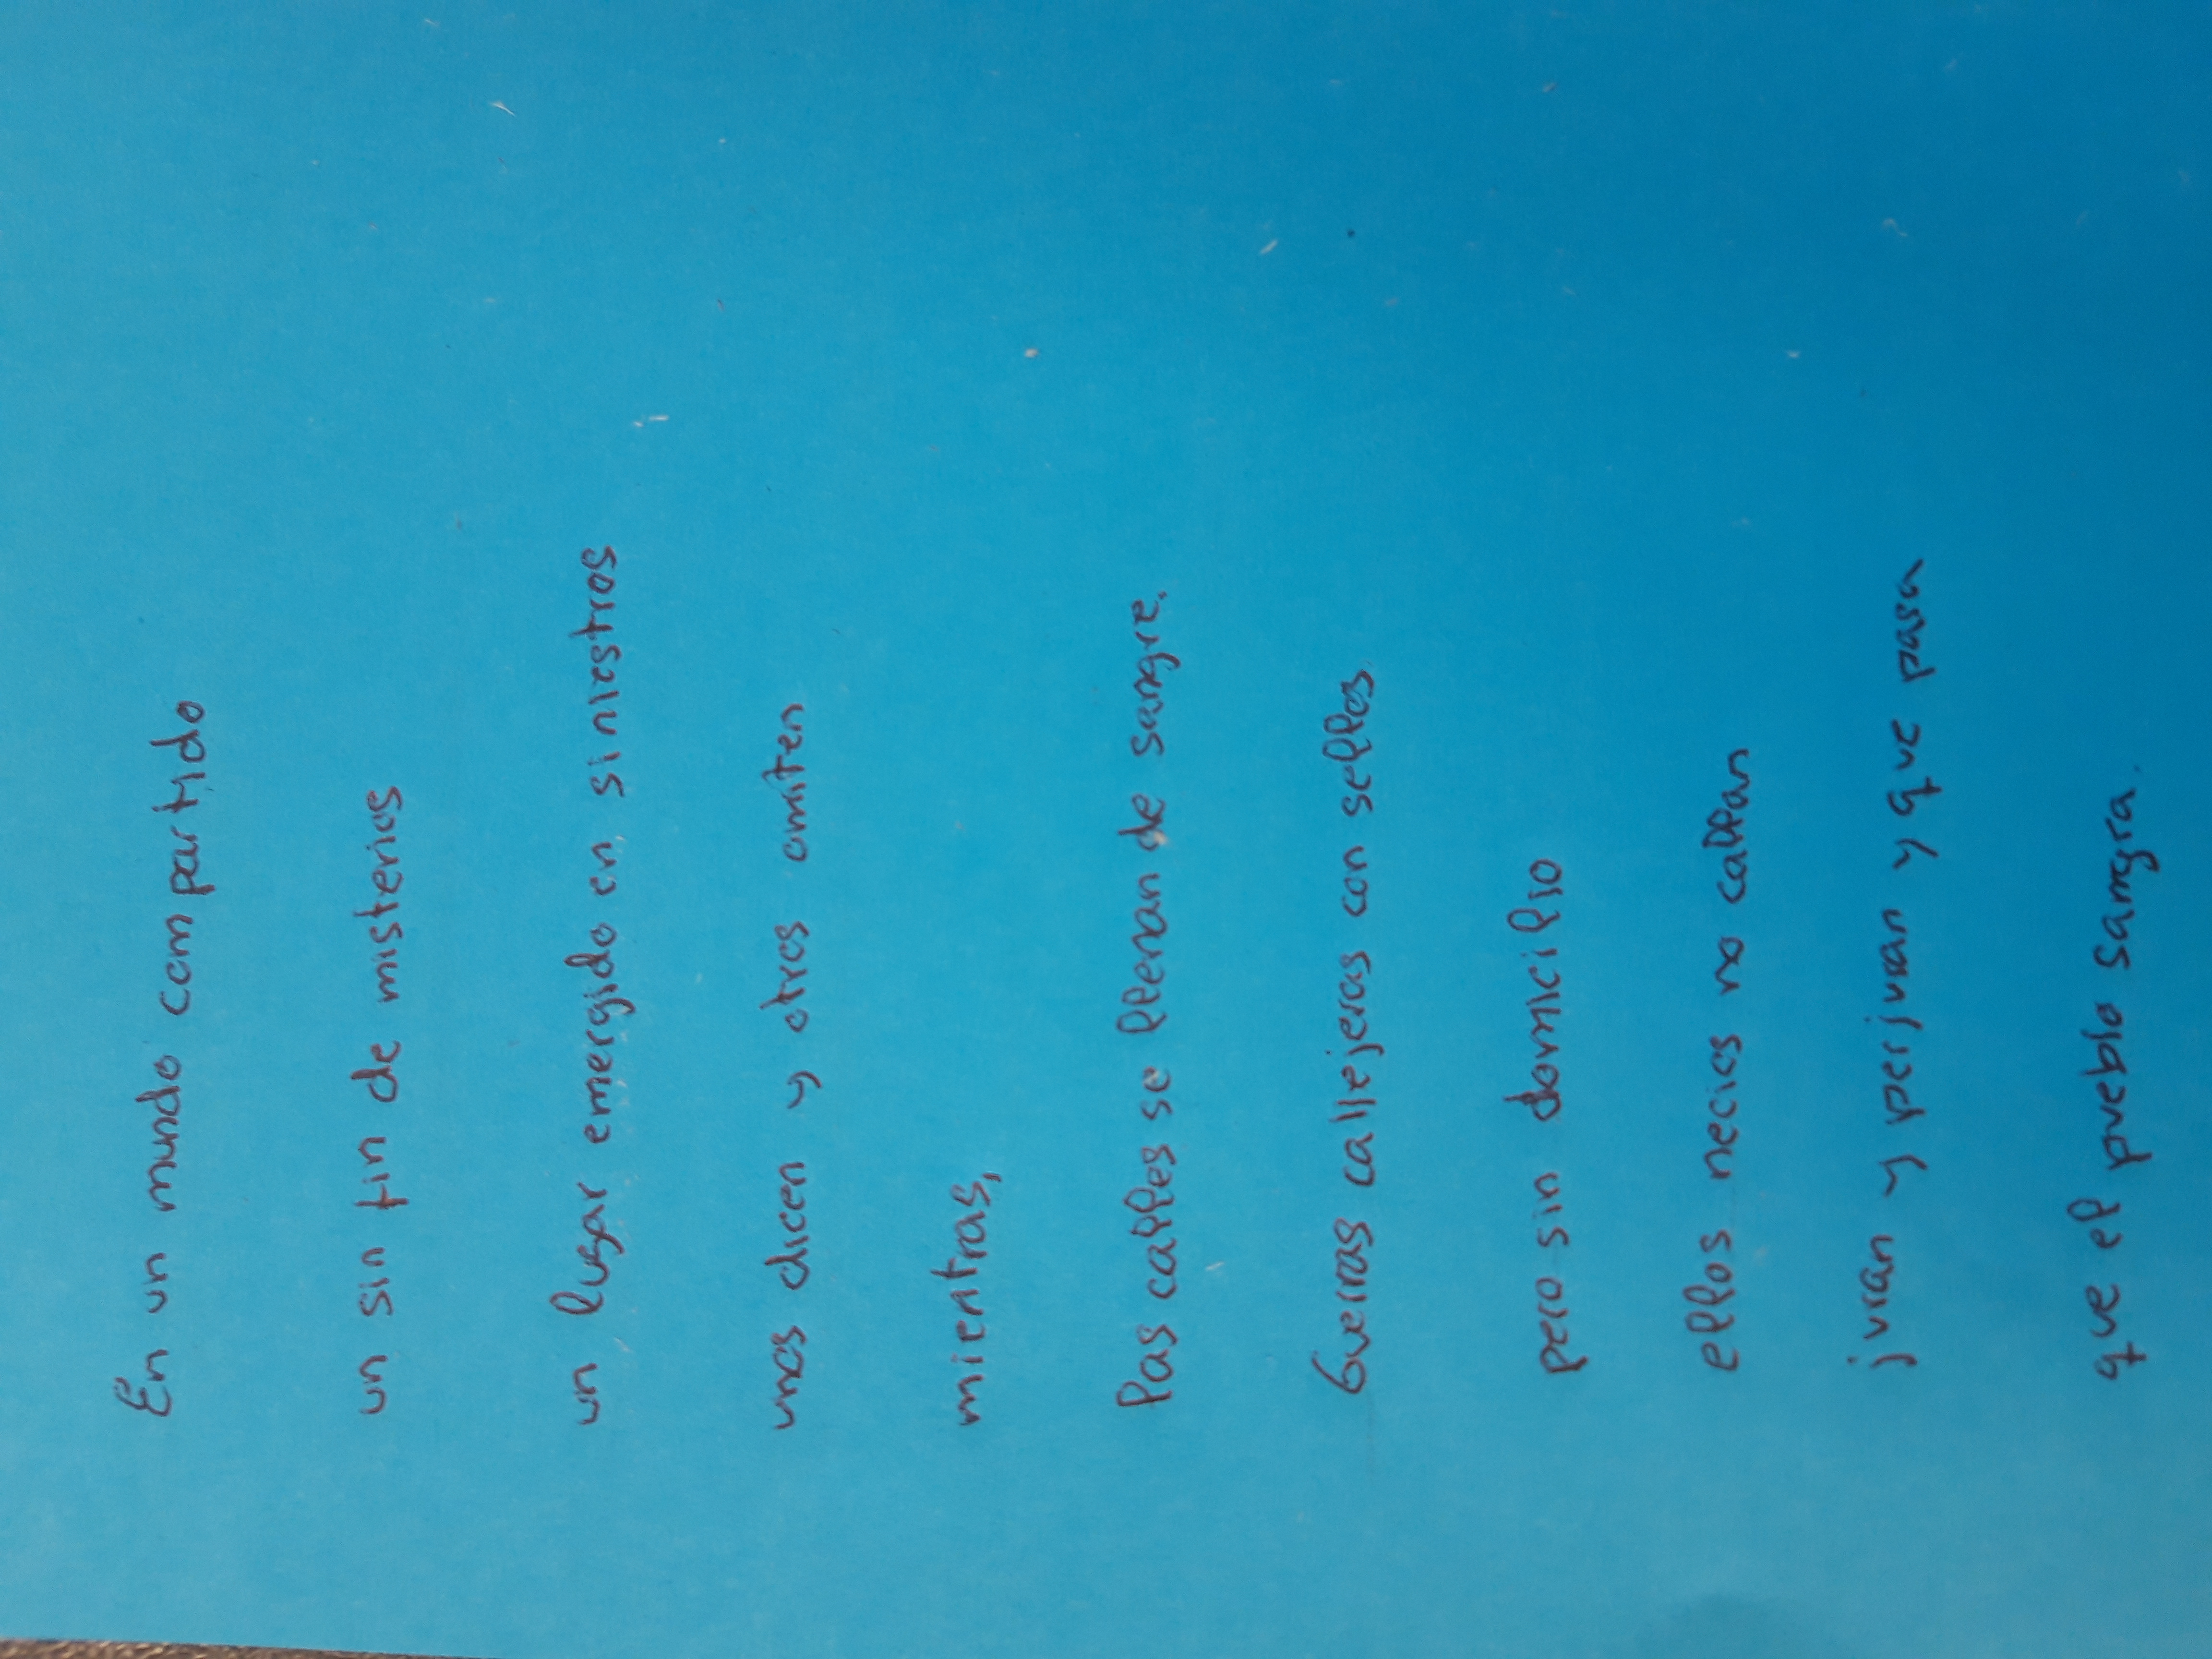 En un mundo compartido
un sin fin de misterios
un lugar emergido en siniestros
unos dicen y otros omiten
mientras,
las calles se llenan de sangre.
Guerras callejeras con sellos.
pero sin domicilio
ellos necios no callan
juran y perjuran y que pasa
que el pueblo sangra.